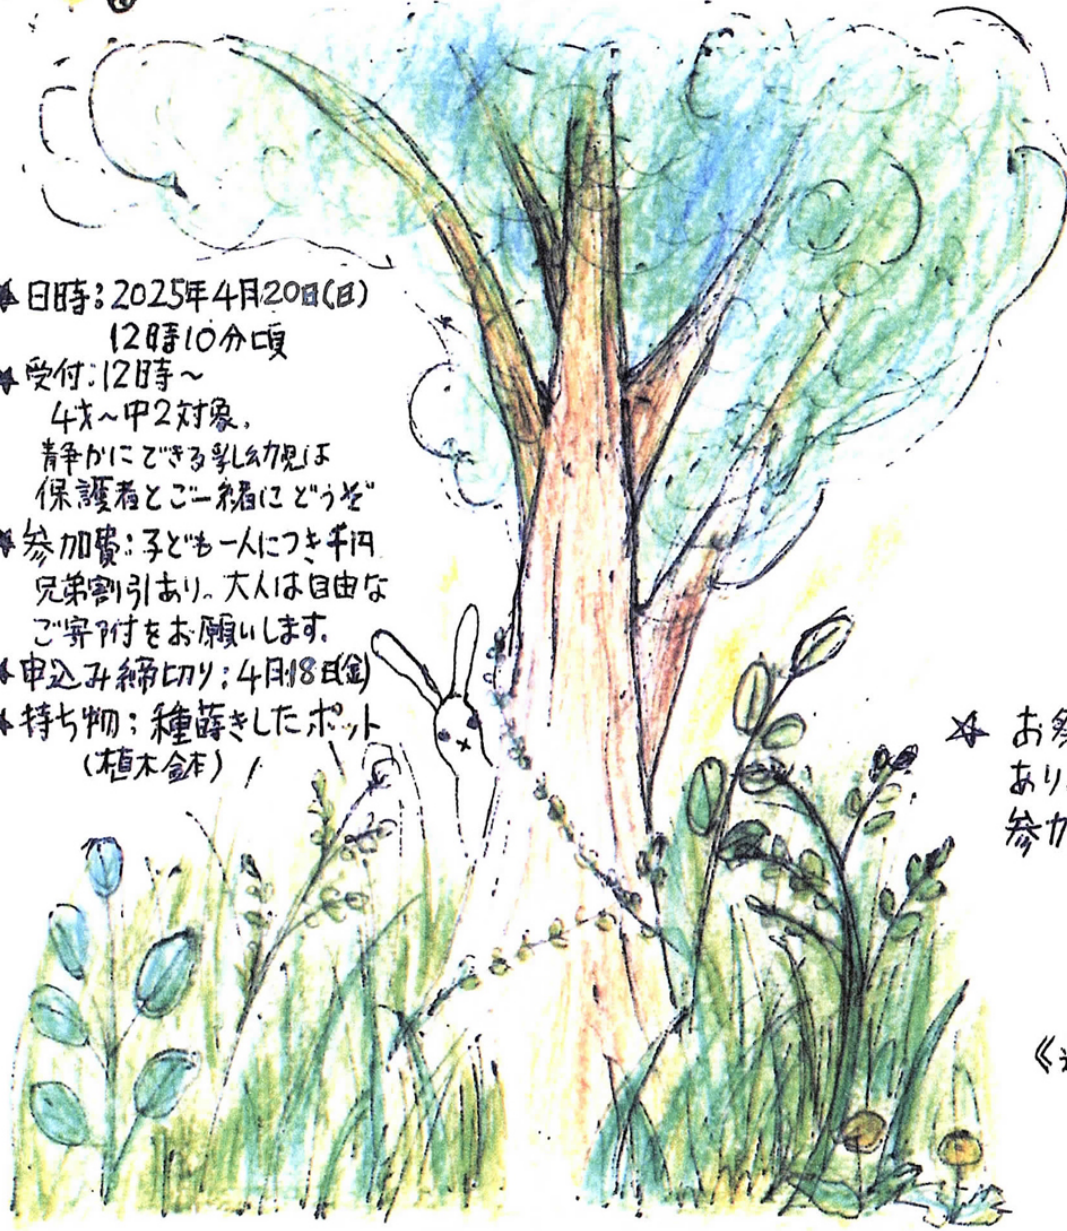 ★日時:2025年4月20日(日)
12時10分頃
★受付:12時~
4才~中2対象。
静かにできる乳幼児は
保護者とご一緒にどうぞ
★参加費:子ども一人につき千円
兄弟割引あり。大人は自由な
ご寄附をお願いします。
★申込み締切り:4月18日(金)
★持ち物:種蒔きしたポット
(植木鉢)
☆ お祭
あり
参加
《